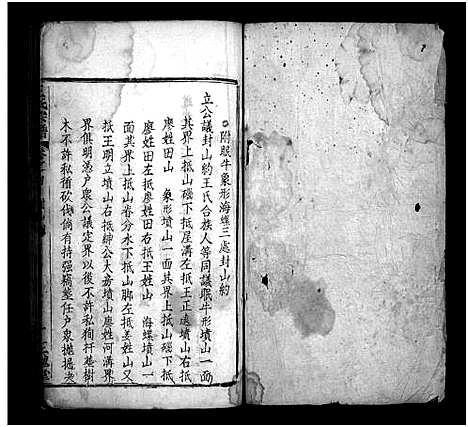 附眠牛象形海螺三處封山約
立公議封山約王氏合族人等同議眠牛形墳山一面
其界上抵山磡下抵屋溝左抵王正遠墳山右抵
廖姓田山 象形墳山一面其界上抵山磡下抵
廖姓田左抵廖姓田右抵王姓山 海螺墳山一
面其界上抵山脊分水下抵山脚左抵姜姓山又
抵王明立墳山右抵緯公大房墳山廖姓河溝界
界俱明憑户衆公議定界以後不許私徇扦塟樹
木不許私徇砍伐倘有持强竊塟任户衆